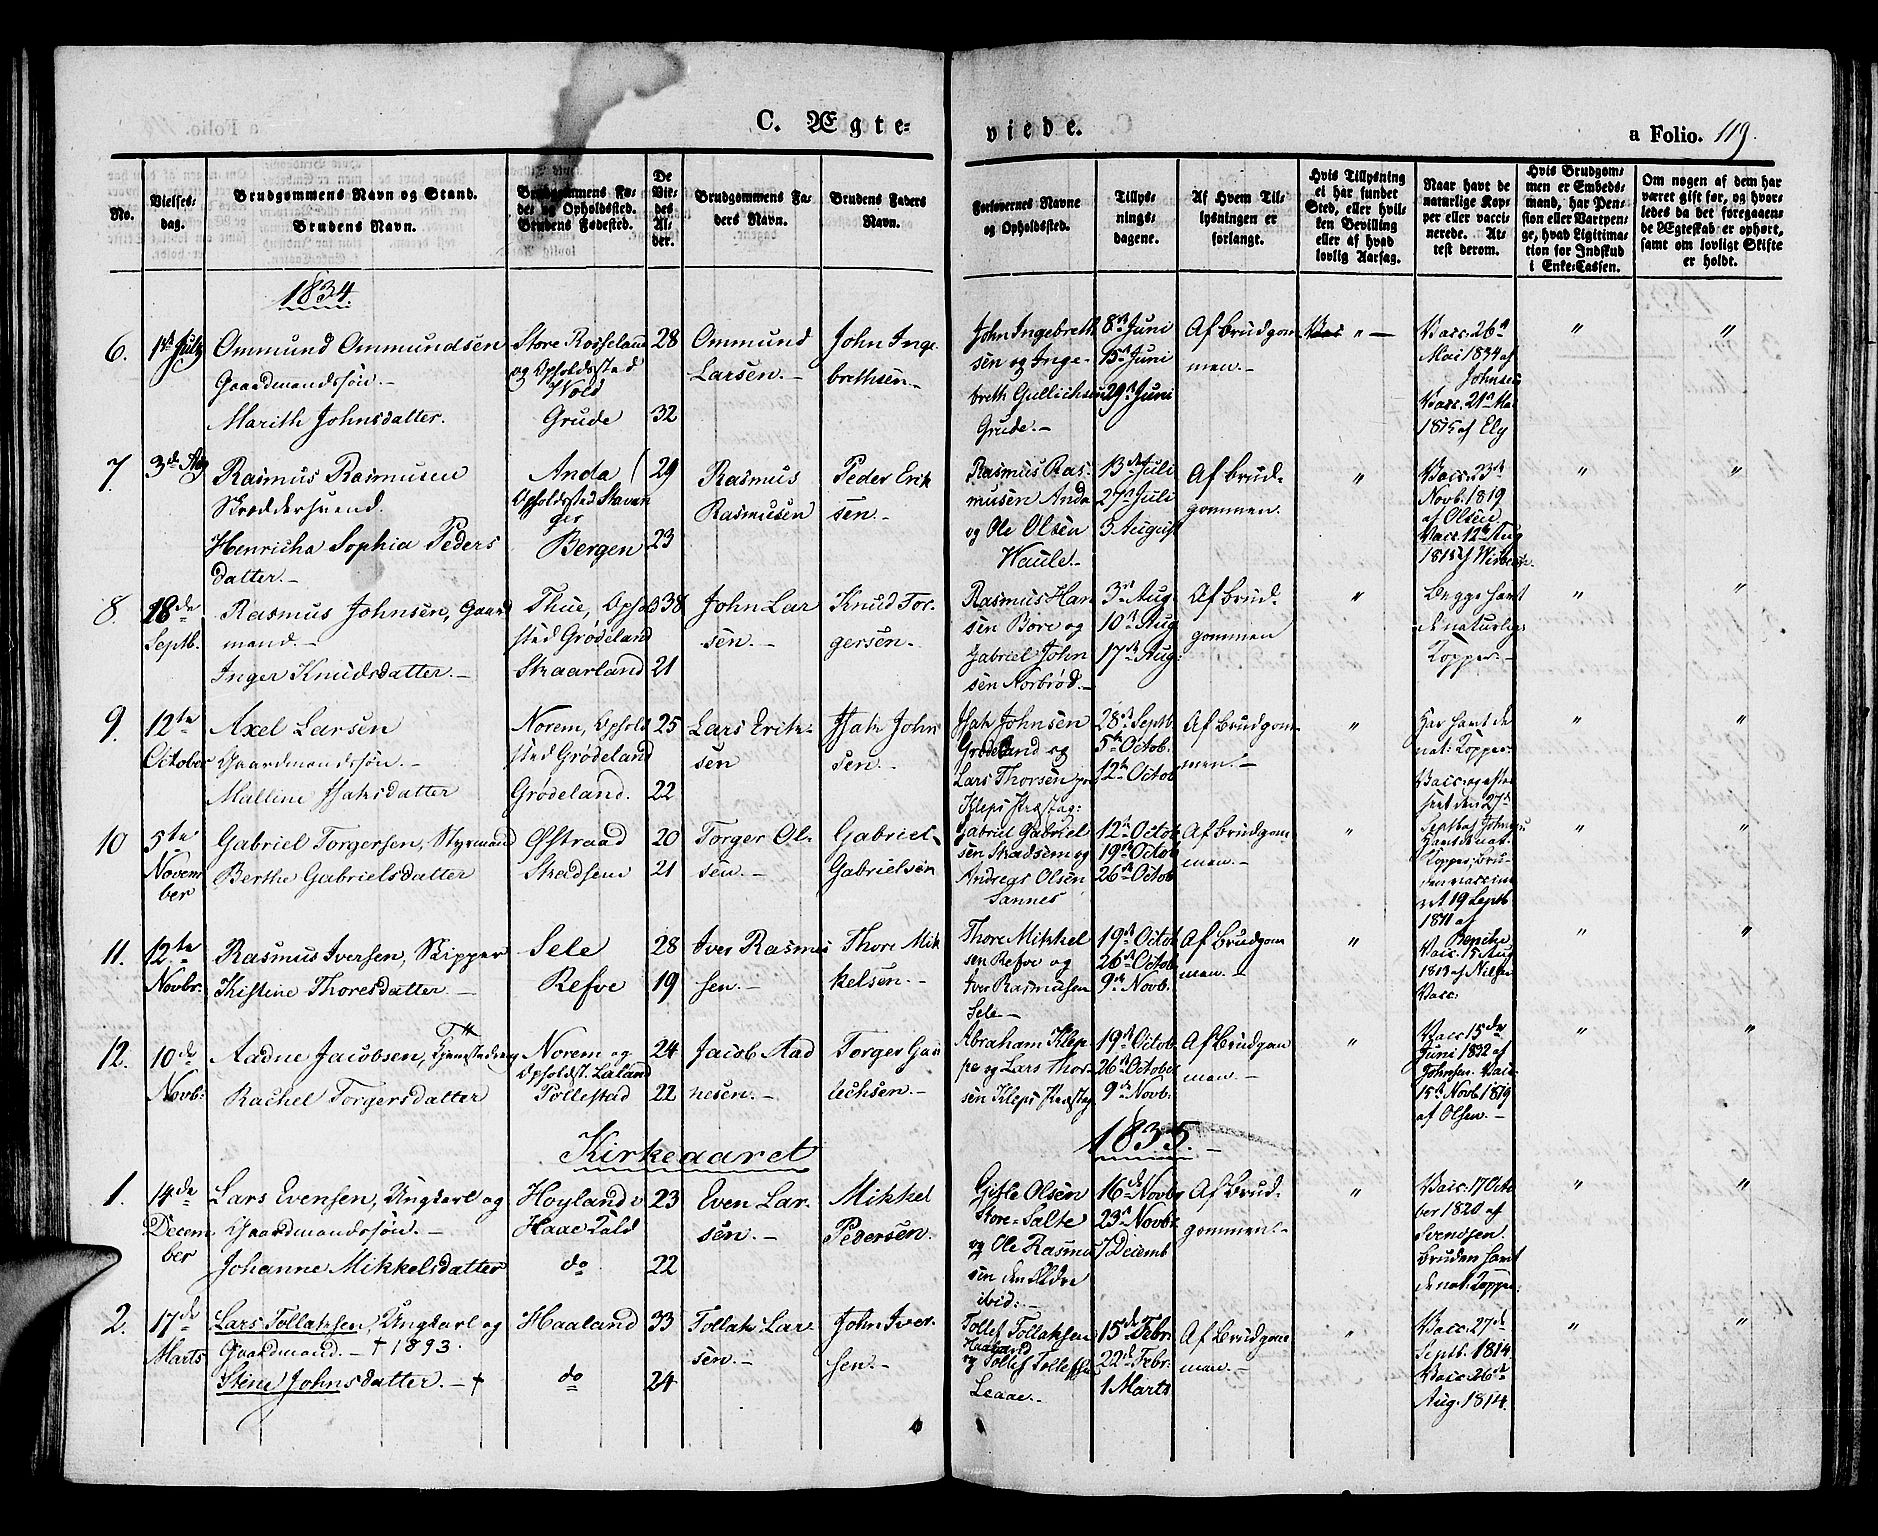 C. Ægte-
viede.
a Folio. 119.
No.
Vielses-
dag.
Brudgommens Navn og Stand.
Brudens Navn.
Brudgommens Fø-
de- og Opholdssted.
Brudens Fødested.
De
Vie-
des
Al-
der.
Brudgommens Fa-
ders Navn.
Brudens Faders
Navn.
Forlovernes Navne
og Opholdssted.
Tillys-
nings-
dagene.
Af Hvem Til-
lysningen er
forlangt.
Hvis Tillysning
ei har fundet
Sted, eller hvil-
ken Bevilling
eller af hvad
lovlig Aarsag.
Naar havt de
naturlige Kop-
per eller vacci-
nerede. At-
test derom.
Hvis Brudgom-
men er Embeds-
mand, har Pen-
sion eller Vartpen-
ge, hvad Legitima-
tion for Indskud
i Enke-Cassen.
Om nogen af dem har
været gift før, og hvor-
ledes da det foregaaen-
de Ægteskab er ophørt,
samt om lovligt Skifte
er holdt.
1834.
6.
1st July
Ommund Ommundsen
Gaardmandssøn.-
Marith Johnsdatter.
Store Rosseland
og Opholdssted
Wold
Grude
28
32
Ommund
Larsen.-
John Inge-
brethsen-
John Ingebreth
sen og Inge-
breth Gullichsen
Grude.-
8de Juni
15de Juni
29de Juni
Af Brudgom
men.-
"
Vacc. 26de
Mai 1834 af
Johnsen
Vacc. 21de Mai
1815 af Ely
"
"
7.
3de Aug
Rasmus Rasmusen
Skræddersvend.
Henricha Sophia Peders
datter.-
Anda
Opholdssted Stavan
ger
Bergen
29
23
Rasmus
Rasmusen
Peder Erik
sen.-
Rasmus Ras-
musen Anda
og Ole Olsen
Haule.-
13de Juli
27de Juli
3 August
Af Brud-
gommen.
"
Vacc. 23de
Novb. 1819
af Olsen
Vacc. 12te Aug
"
"
8.
18de
Septb.
Rasmus Johnsen, Gaard
mand.-
Inger Knudsdatter.-
Thue, Ophold
sted Grødeland
Skaarland
38
21
John Lar
sen.-
Knud Tor-
gersen.-
Rasmus Han
sen Bore og
Gabriel John
sen Norbrød.-
3de Aug
10de Aug
17de Aug:
Af Brud-
gommen
"
Begge havt
de naturlig:
Kopper.-
"
"
9.
12te
October
Axel Larsen
Gaardmandssøn.-
Malline Isaksdatter
Norem, Ophold
sted Grødeland
Grødeland.
25
22
Lars Erik-
sen
Isak John
sen.-
Isak Johnsen
Grødeland og
Lars Thorsen
Kleps Præstag:
28de Septb
5te Octob.
12te Octob
Af Brudgom-
men.-
"
Har havt de
nat: Kopper.
"
"
10
5te
Novem
ber
Gabriel Torgersen, Styrmand
Berthe Gabrielsdatter
Østraad
Skadsem
20
21
Torger Ol-
sen.-
Gabriel
Gabrielsen
Gabriel Gabriel
sen Skadsem og
Andreas Olsen
Sannes
12te Octob
19de Octob
26de Octob
Af Brudgom
men.-
"
"
"
11.
12te
Novbr.
Rasmus Iversen, Skipper
Kistine Thoresdatter.-
Sele
Refve
28
19
Iver Rasmus
sen.-
Thore Mik
kelsen.-
Thore Mikkel
sen Refve og
Iver Rasmusen
Sele-
19de Octob
26de Octob
9de Novb.
Af Brudgom
men.-
"
Vacc. 15 Aug
1813 af Nilsen
Vacc.
"
"
12.
10de
Novb:
Aadne Jacobsen,
Rachel Torgersdatter
Norem og
Opholdst. Laland
Tollestad
24
22
Jacob Aad
nesen.-
Torger Gau
techsen.-
Abraham Klep
pe og Lars Thor-
sen Kleps Præstag
19de Octob
26de Octobr
9de Novb.
Af Brudgom
men.-
"
Vacc 15de
Juni 1832 af
Johnsen. Vacc
15de Novb. 1819
af Olsen.-
"
"
Kirkeaaret
1835.-
1.
14de
Decem
ber
Lars Evensen, Ungkarl og
Gaardmandssøn.-
Johanne Mikkelsdatter
Hoyland
do
23
22
Even Lar-
sen.-
Mikkel
Pedersen.
Gisle Olsen
Store-Salte
og Ole Rasmu
sen den Ældre
ibid:-
16de Novbr
23de Novbr.
7 Decemb
Af Brud-
gommen.-
"
Vacc. 17 Octo
ber 1820 af
Svendsen.
Bruden havt
de nat. Kopper.
"
"
2.
17de
Marts
Lars Tollaksen, Ungkarl og
Gaardmand.- † 1893.
Stine Johnsdatter.- †
Haaland
do
33
24
Tollak Lar
sen.-
John Iver-
sen.-
Tollef Tollaksen
Haaland
og Tollef Tollefsen
Leaae.-
15de Febr.
22de Febr.
1 Marts
Af Brudgom
men.-
"
Vacc. 27de
Septb. 1814
Vacc. 26de
Aug. 1814.
"
"